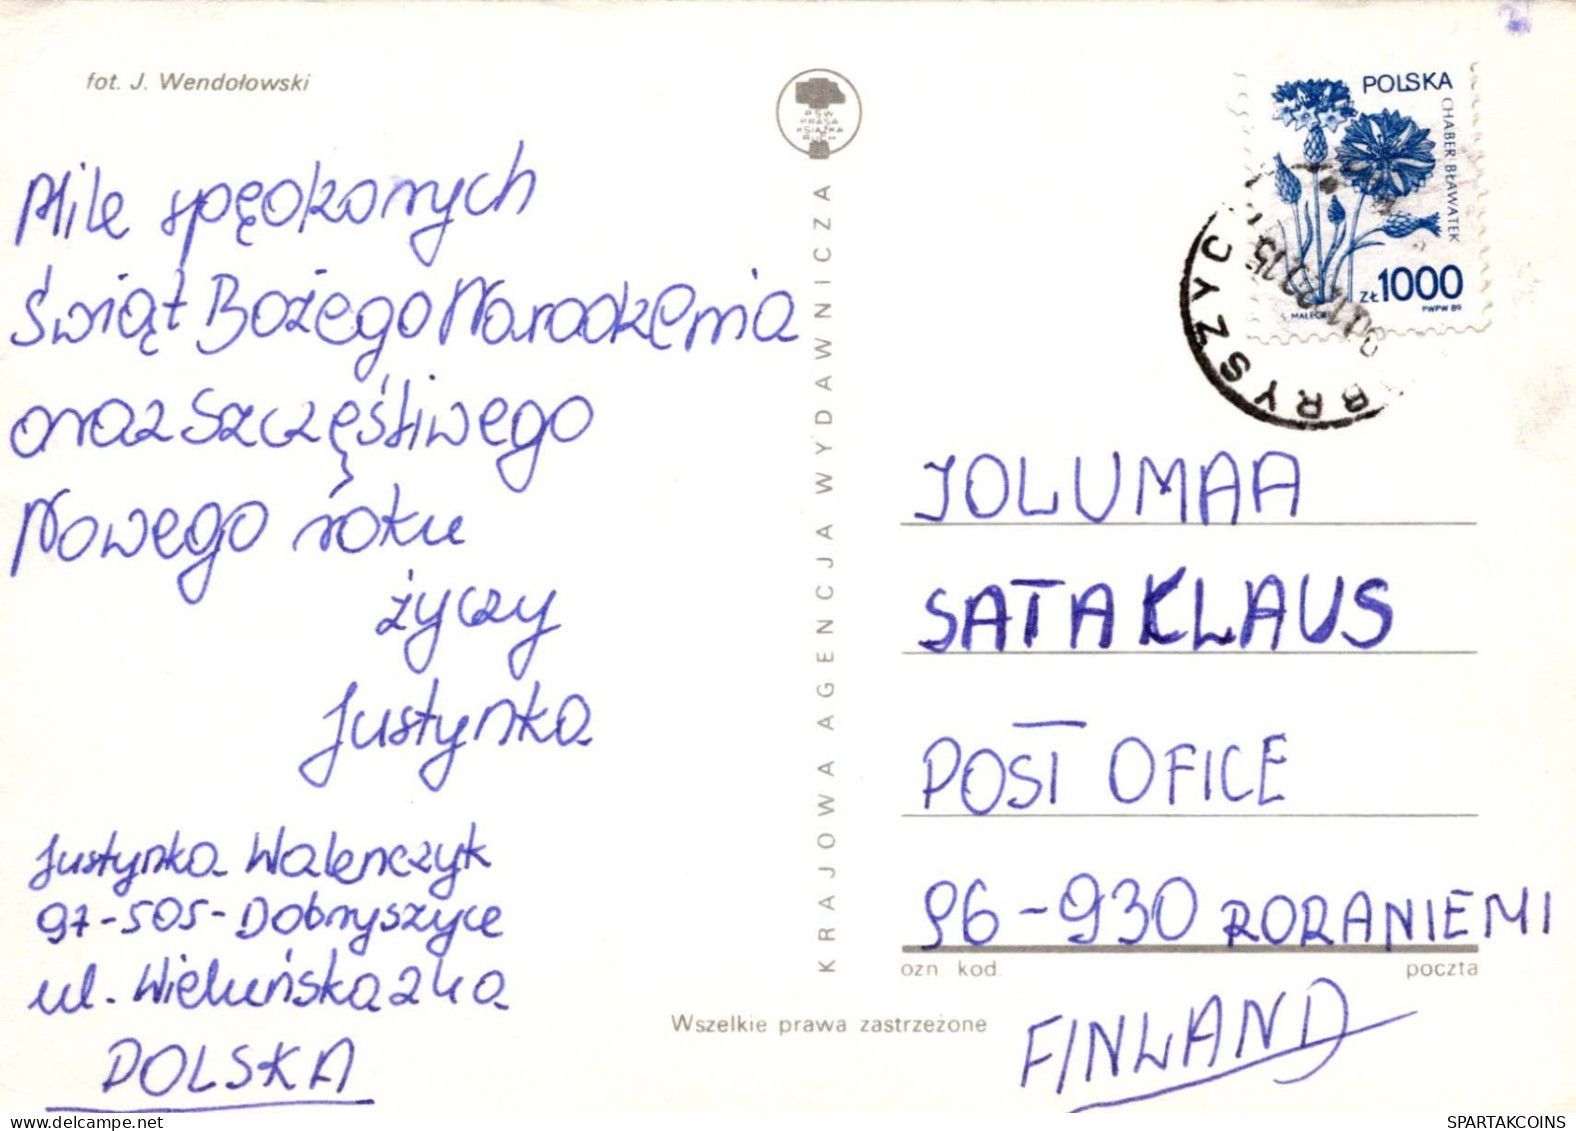 fot. J. Wendołowski
Mile spędzonych
Świąt Bożego Narodzenia
oraz Szczęśliwego
Nowego roku
życzy
Justynka
Justynka Walenczyk
97-505-Dobryszyce
ul. Wieluńska 24a
POLSKA
RSW
PRASA
KSIĄŻKA
RUCH
KRAJOWA AGENCJA WYDAWNICZA
Wszelkie prawa zastrzeżone
POLSKA
CHABER BŁAWATEK
ZŁ 1000
PWPW 89
BRYSZYC
JOLUMAA
SATAKLAUS
POST OFICE
96-930 RORANIEMI
ozn. kod. poczta
FINLAND
SPARTAKCOINS